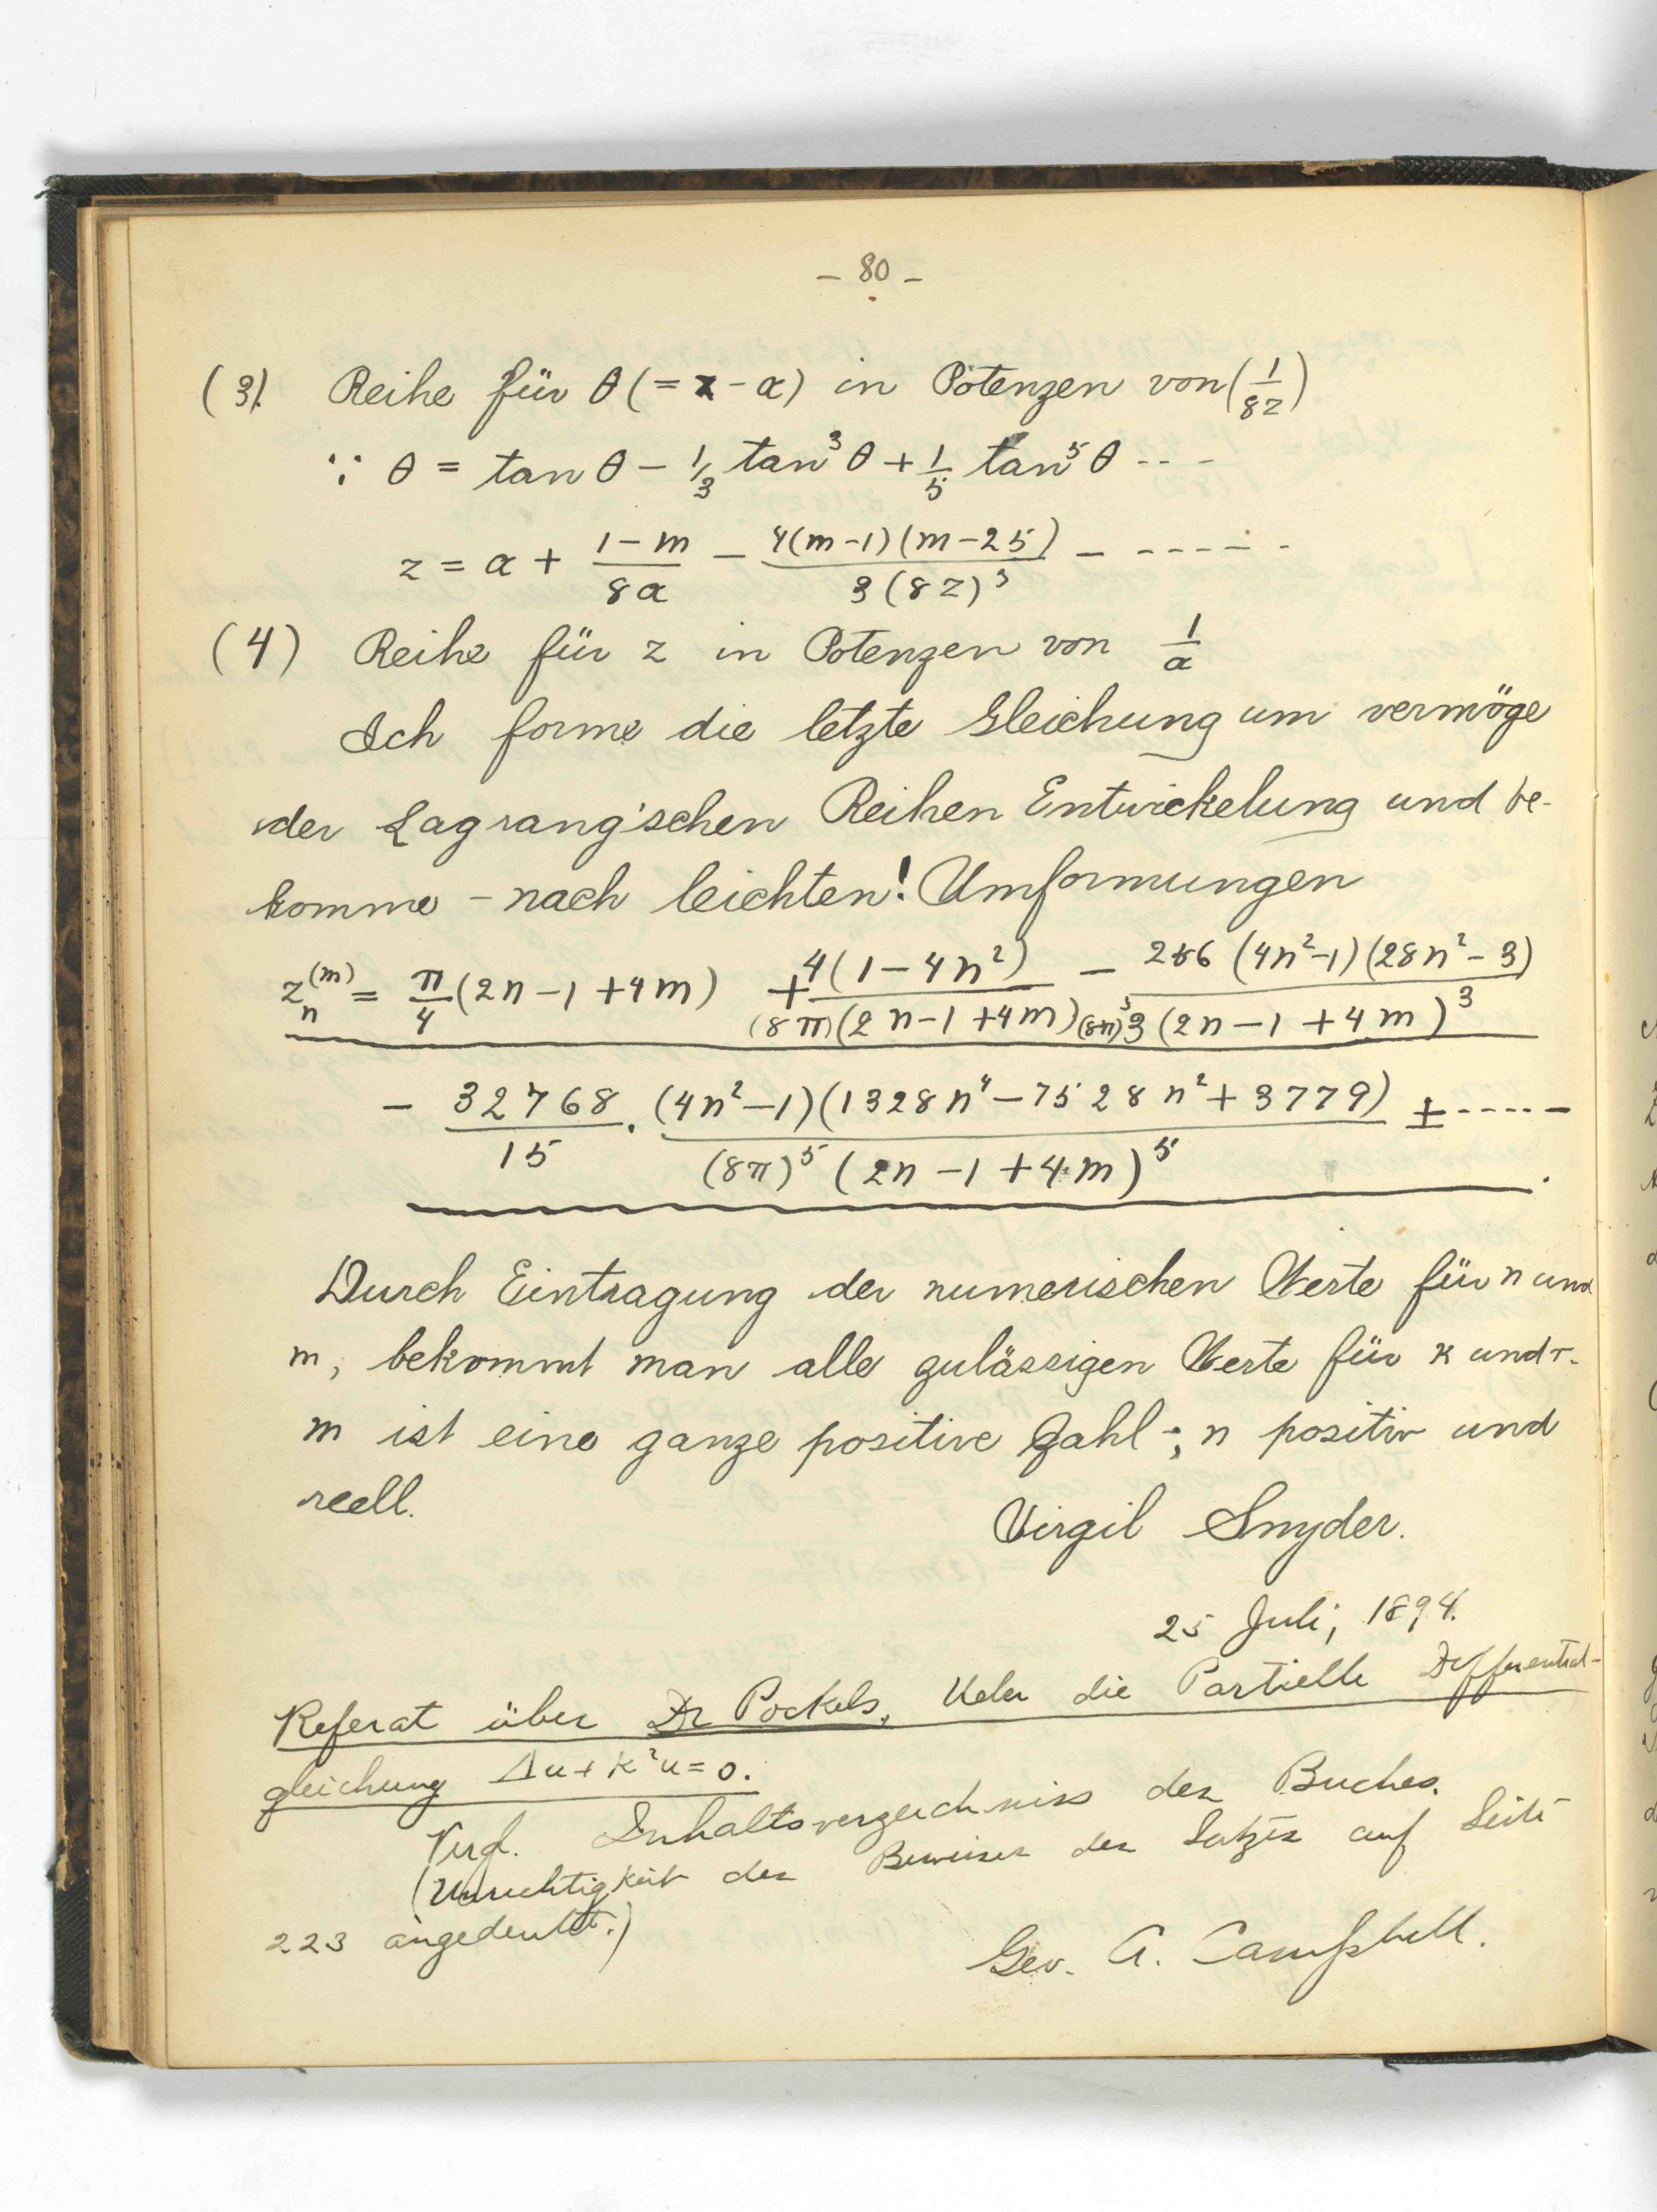 – 80 –
(3). Reihe für θ (= z – α) in Potenzen von (1/8z)
∵ θ = tan θ – 1/3 tan³ θ + 1/5 tan⁵ θ - - -
z = α + (1–m)/(8α) – 4(m–1)(m–25)/(3(8z)³) – - - - - - -
(4) Reihe für z in Potenzen von 1/α
Ich forme die letzte Gleichung um vermöge
der Lagrang'schen Reihen Entwickelung und be-
komme – nach leichten! Umformungen
z_n^(m) = π/4 (2n–1+4m) + 4(1–4n²)/((8π)(2n–1+4m)) – 256 (4n²–1)(28n²–3)/((8π)³3(2n–1+4m)³)
– 32768/15 · (4n²–1)(1328n⁴–7528n²+3779)/((8π)⁵(2n–1+4m)⁵) ± - - - - -
Durch Eintragung der numerischen Werte für n und
m, bekommt man alle zulässigen Werte für κ und r.
m ist eine ganze positive Zahl -; n positiv und
reell.
Virgil Snyder.
25 Juli, 1894.
Referat über Dr Pockels, Ueber die Partielle Differential-
gleichung Δu + k²u = 0.
Vergl. Inhaltsverzeichniss des Buches.
(Unrichtigkeit des Beweises des Satzes auf Seite
223 angedeutet.)
Geo. A. Campbell.